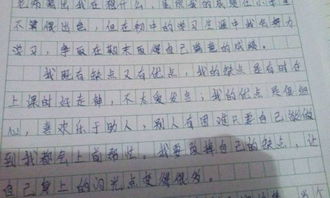 老师猜出我在想什么，虽然我的成绩在小学里
不算很出色，但在初中的学习生涯中我会努力
学习，争取在期末取得自己满意的成绩。
我既有缺点又有优点，我的缺点是有时在
上课时好走神，不太爱发言；我的优点是很细
心，喜欢乐于助人，别人有困难只要自己能做
到我都会上前帮忙。我要改掉自己的缺点，让
自己身上的闪光点变得很多。